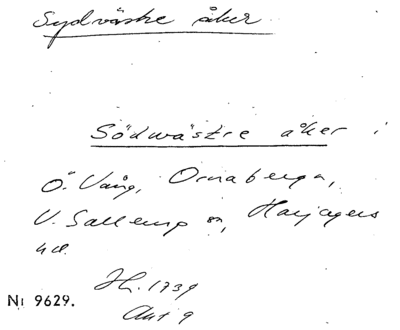 Sydvästre åker
Södwästre åker i
Ö. Vång, Ornaberga,
V. Sallerup sn, Harjagers
hd.
Hh. 1739
Akt 9
Nr 9629.